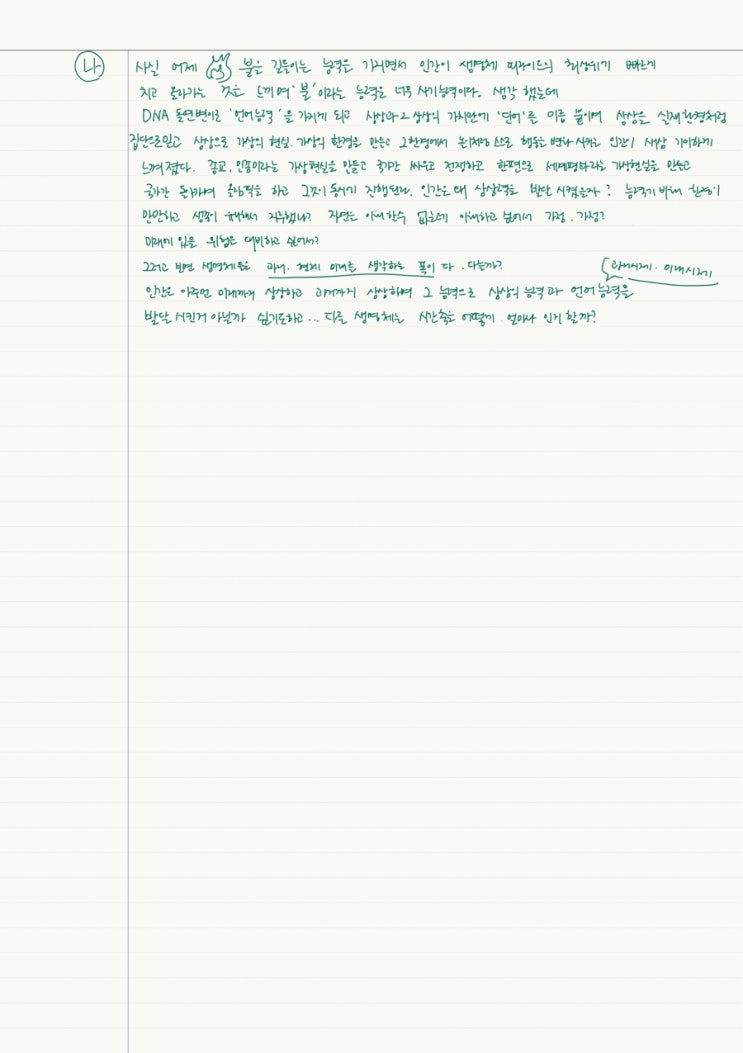 나
사실 어제 불을 길들이는 능력을 가지면서 인간이 생명체 피라미드의 최상위가 빠르게
치고 올라가는 것을 느끼며 '불'이라는 능력은 너무 사기능력이다. 생각 했는데
DNA 돌연변이로 '언어능력'을 가지게 되고 상상과 그 상상의 가치관에 '단어'를 이름 붙이며 상상을 실재환경처럼
집단으로 믿고 상상으로 가상의 현실, 가상의 환경을 만들고 그 환경에서 스스로 행동을 변화 시키는 인간이 새삼 기이하게
느껴졌다. 종교, 인종이라는 가상현실을 만들고 국가간 싸우고 전쟁하고 한편으로 세계평화라는 가상현실을 만들고
국가간 올림픽을 하고 그것이 동시에 진행된다. 인간은 왜 상상력을 발달 시켰을까? 능력에 비해 환경이
만만하고 생존이 지루했나? 자연을 이해할수 없기에 이해하고 싶어서 가정, 가정?
미래에 있을 위험을 대비하고 싶어서?
그러고 보면 생명체들은 과거, 현재 미래를 생각하는 폭이 다 다를까?
과거시제, 미래시제
인간은 아주먼 미래까지 상상하고 과거까지 상상하며 그 능력으로 상상의 능력과 언어능력을
발달 시킨거 아닐까 싶기도하고... 다른 생명체는 시간축을 어떻게 얼마나 인지 할까?